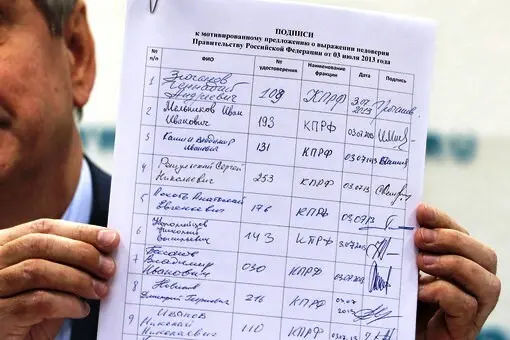 ПОДПИСИ
к мотивированному предложению о выражении недоверия
Правительству Российской Федерации от 03 июля 2013 года
№ п/п ФИО № удостоверения Наименование фракции Дата Подпись
1 Зюганов Геннадий Андреевич 109 КПРФ 3.07 2013
2 Мельников Иван Иванович 193 КПРФ 03.07.2013
3 Кашин Владимир Иванович 131 КПРФ 03.07.2013
4 Решульский Сергей Николаевич 253 КПРФ 03.07.13
5 Локоть Анатолий Евгеньевич 176 КПРФ 03.07.13
6 Коломейцев Николай Васильевич 143 КПРФ 3.07.2013
7 Бессонов Владимир Иванович 030 КПРФ 03.07.2013
8 Новиков Дмитрий Георгиевич 216 КПРФ 03.07 2013
9 Иванов Николай Николаевич 110 КПРФ 03.07.13